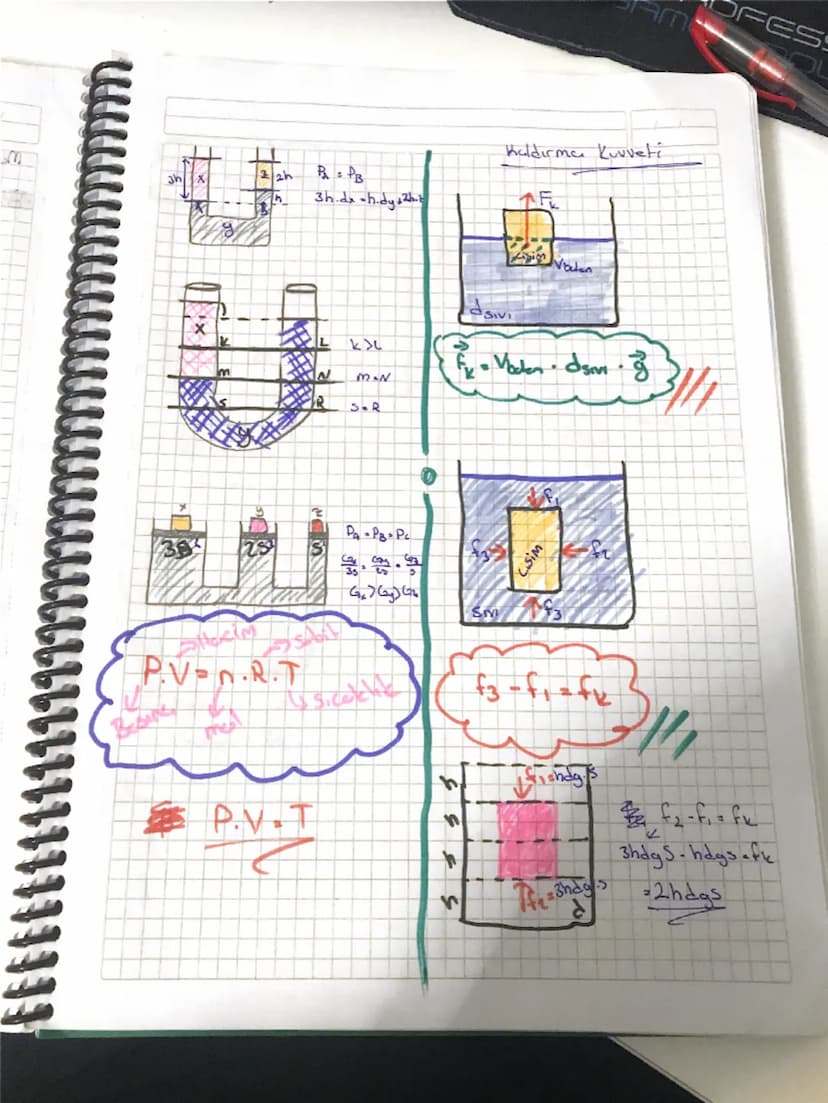 3h
x
z
2h
h
A
B
y
P_A = P_B
3h.dx = h.dy + 2h.dz
x
K
L
M
N
S
R
y
K > L
M = N
S = R
x
y
z
3S
2S
S
P_A = P_B = P_C
Gx/3S = Gy/2S = Gz/S
Gx > Gy > Gz
Hacim
sabit
P.V = n.R.T
Basınç
mol
sıcaklık
P.V = T
Kaldırma Kuvveti
F_k
cisim
V batan
d sıvı
F_k = V batan . d sıvı . g
f1
f3
cisim
f2
sıvı
f3
f3 - f1 = fk
h
h
h
h
f1 = hdg.S
f2 = 3hdg.S
d
f2 - f1 = fk
3hdgS - hdgS = fk
= 2hdgS